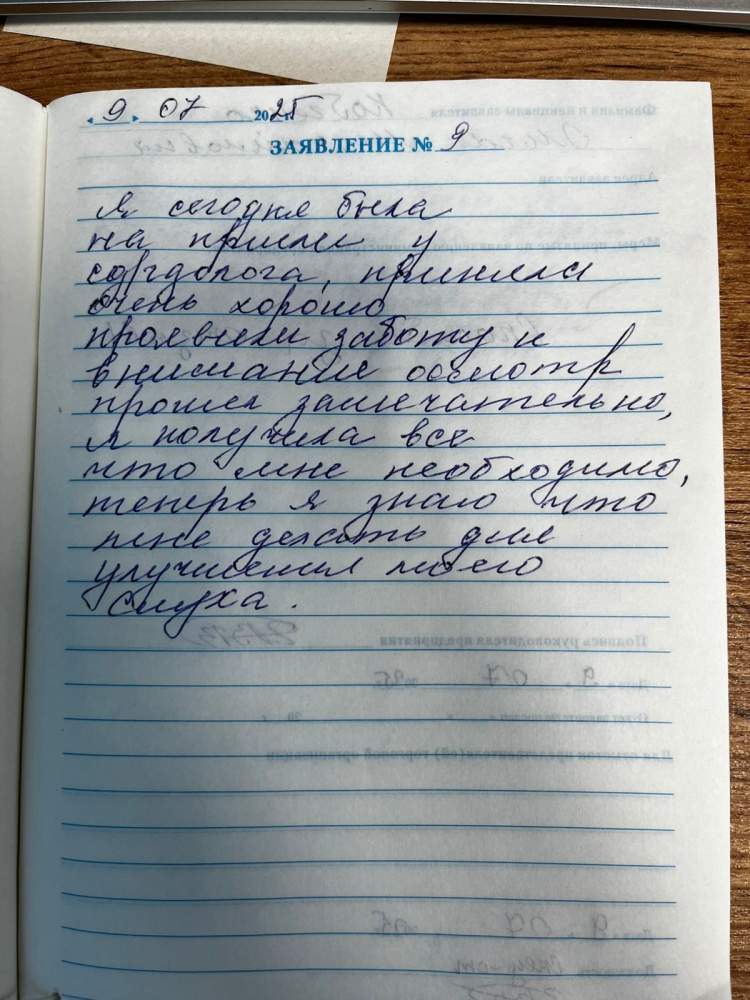 « 9 » 07 2025
ЗАЯВЛЕНИЕ № 9
Я сегодня была
на приеме у
сургдолога, приняли
очень хорошо
проявили заботу и
внимание осмотр
прошел замечательно,
я получила все
что мне необходимо,
теперь я знаю что
мне делать для
улучшения моего
слуха.